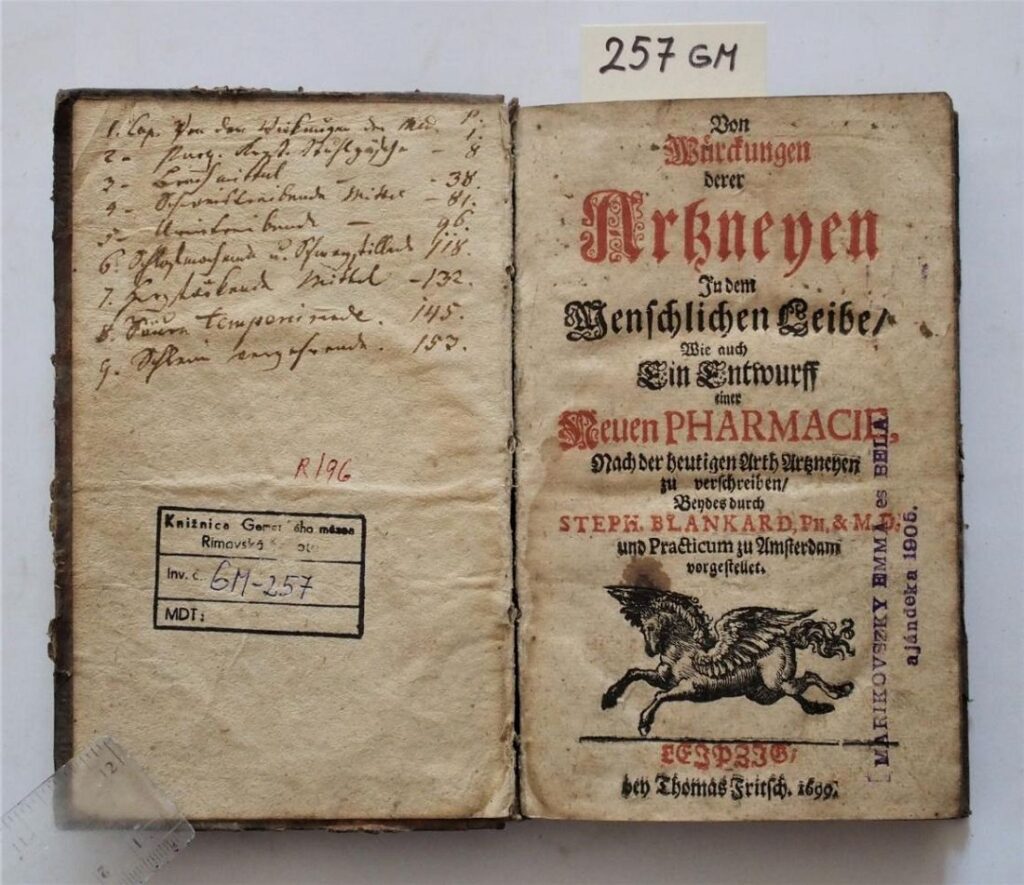 257 GM
1. Cap. Von den Wirkungen der Med. p. 1.
2 - Purg. 8
3 - Brechmittel - 38.
4 - Schweistreibende Mittel - 81.
5 - 96.
6. u. 118.
7. Mittel - 132.
8. Säure temperirende. 145.
9. Schleim 153.
R/96
Knižnica Gemer ého múzea
Rimavská
Inv. č. GM-257
MDT:
Von
Würckungen
derer
Artzneyen
In dem
Menschlichen Leibe/
Wie auch
Ein Entwurff
einer
Neuen PHARMACIE,
Nach der heutigen Arth Artzneyen
zu verschreiben/
Beydes durch
STEPH. BLANKARD, PH. & M.D.
und Practicum zu Amsterdam
vorgestellet.
LEIPZIG/
bey Thomas Fritsch. 1699.
MARIKOVSZKY EMMA és BELA
ajándeka 1905.
12
11
1
2